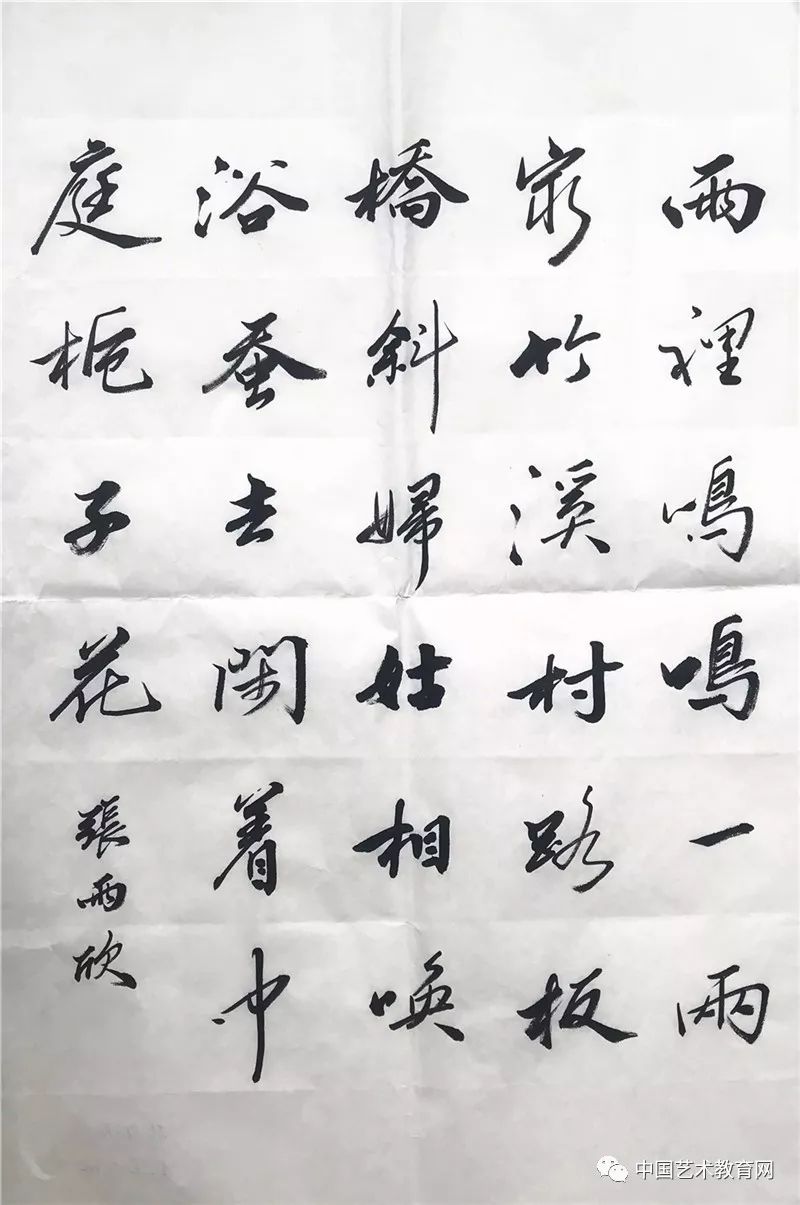 雨裡鳴鳴一兩
家竹溪村路板
橋斜婦姑相喚
浴蚕去閑着中
庭栀子花
張雨欣
中国艺术教育网